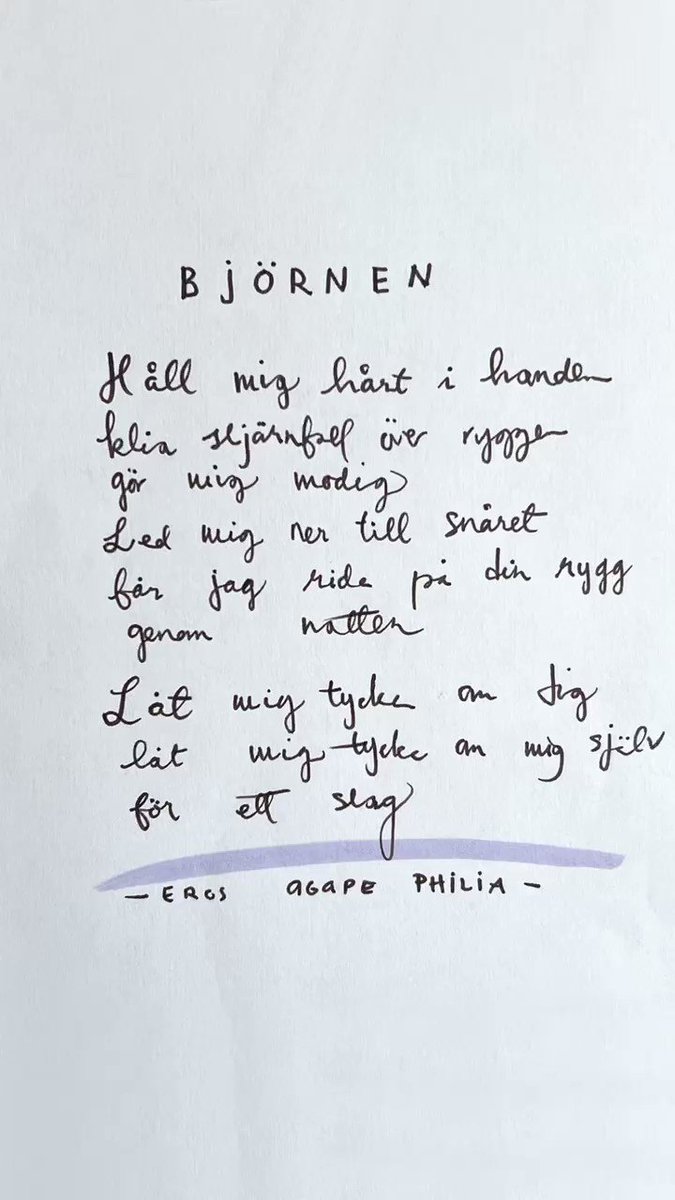 BJÖRNEN
Håll mig hårt i handen
klia stjärnfall över ryggen
gör mig modig
Led mig ner till snåret
får jag rida på din rygg
genom natten
Låt mig tycka om dig
låt mig tycka om mig själv
för ett slag
— EROS AGAPE PHILIA —